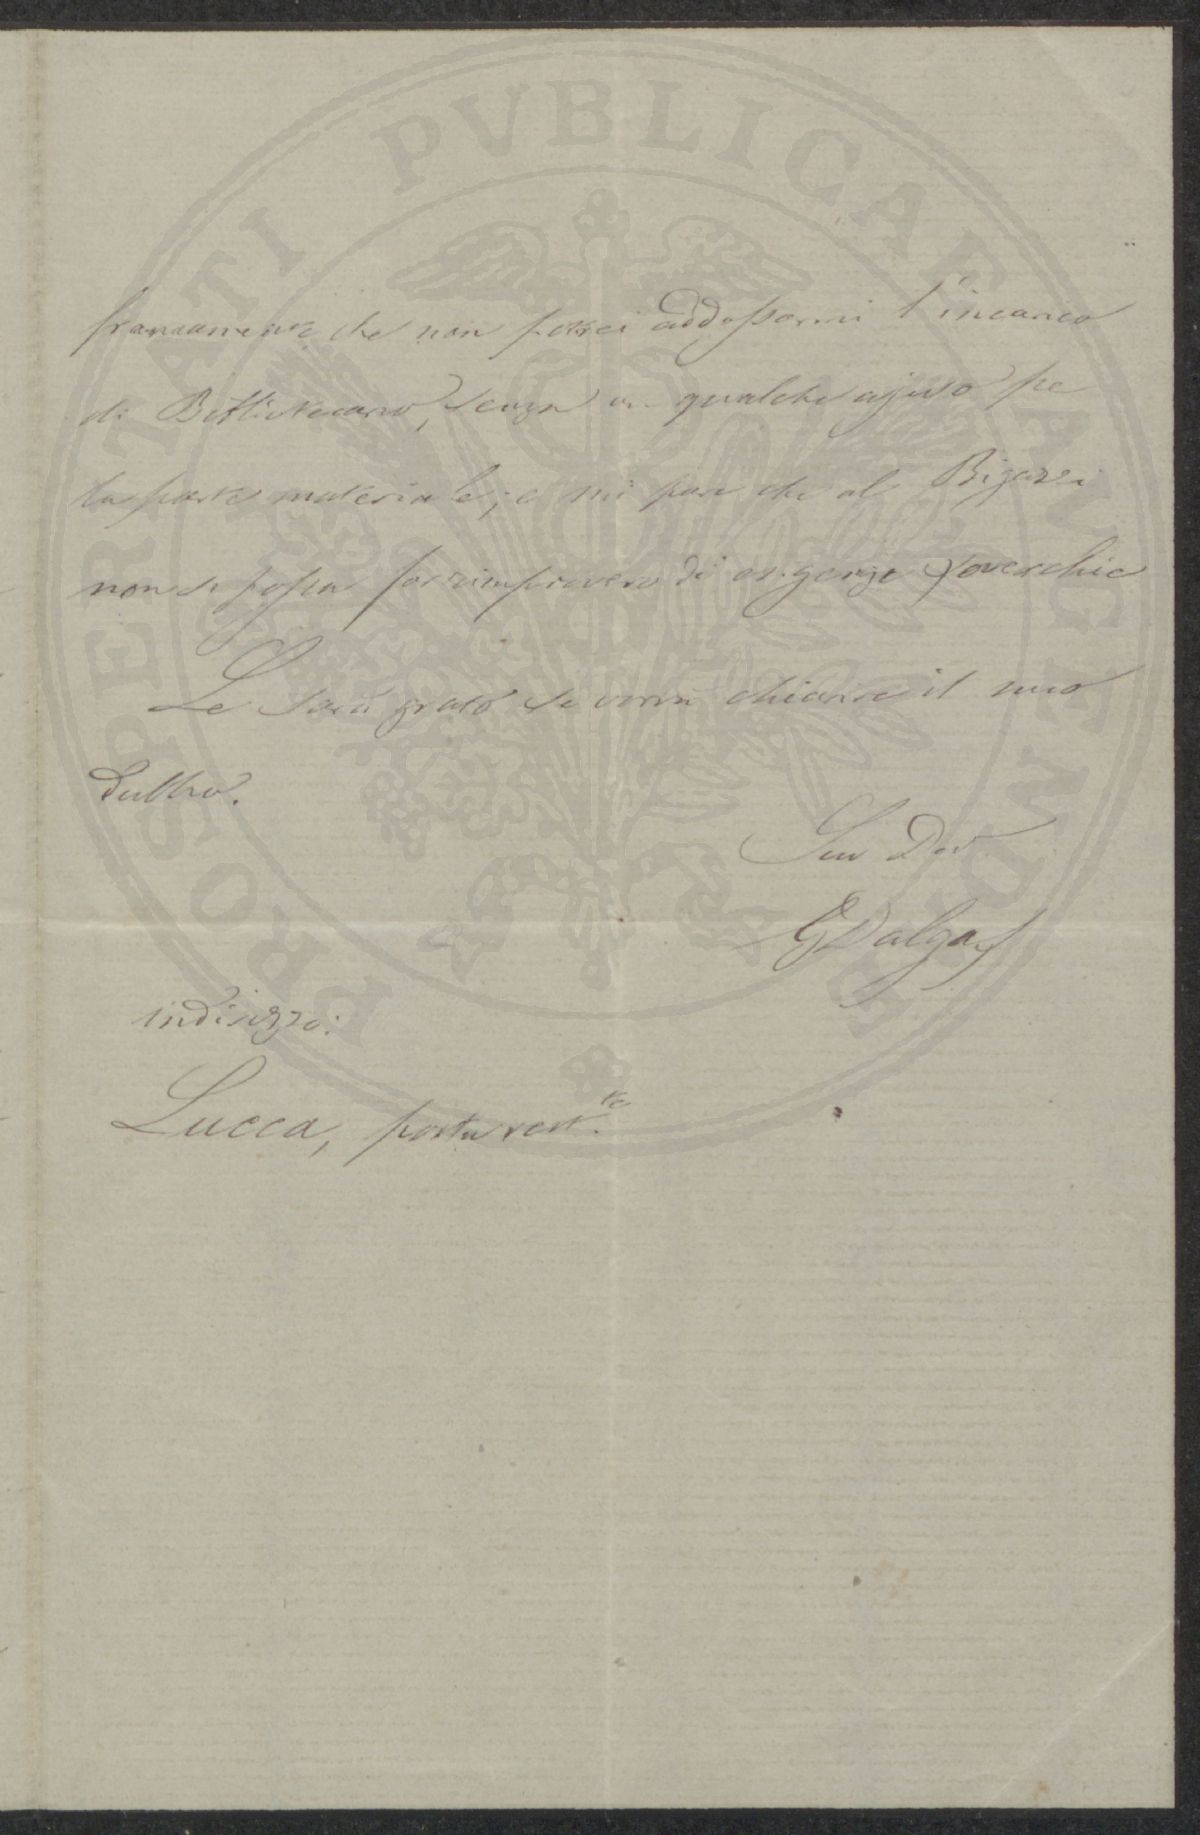 francamente che non potrei addossarmi l'incarico
di Bibliotecario, senza un qualche ajuto pe
la parte materiale; e mi pare che al Bigazzi
non si possa far rimprovero di esigenze soverchie
Le sarò grato se vorrà chiarire il mio
dubbio.
Suo Dev.
GDalgas
indirizzo:
Lucca, posta rest.te
PROSPERITATI PVBLICAE AVGENDAE